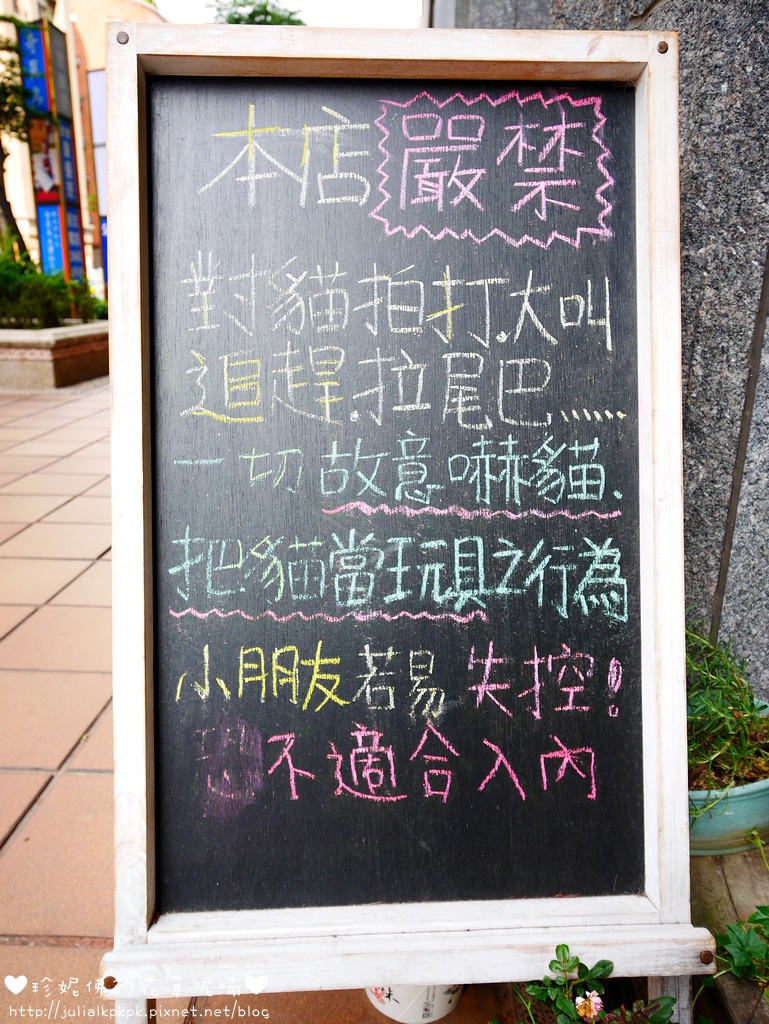 本店嚴禁
對貓拍打.大叫
追趕.拉尾巴......
一切故意嚇貓.
把貓當玩具之行為
小朋友若易失控!
恐不適合入內
http://julialkpkpk.pixnet.net/blog